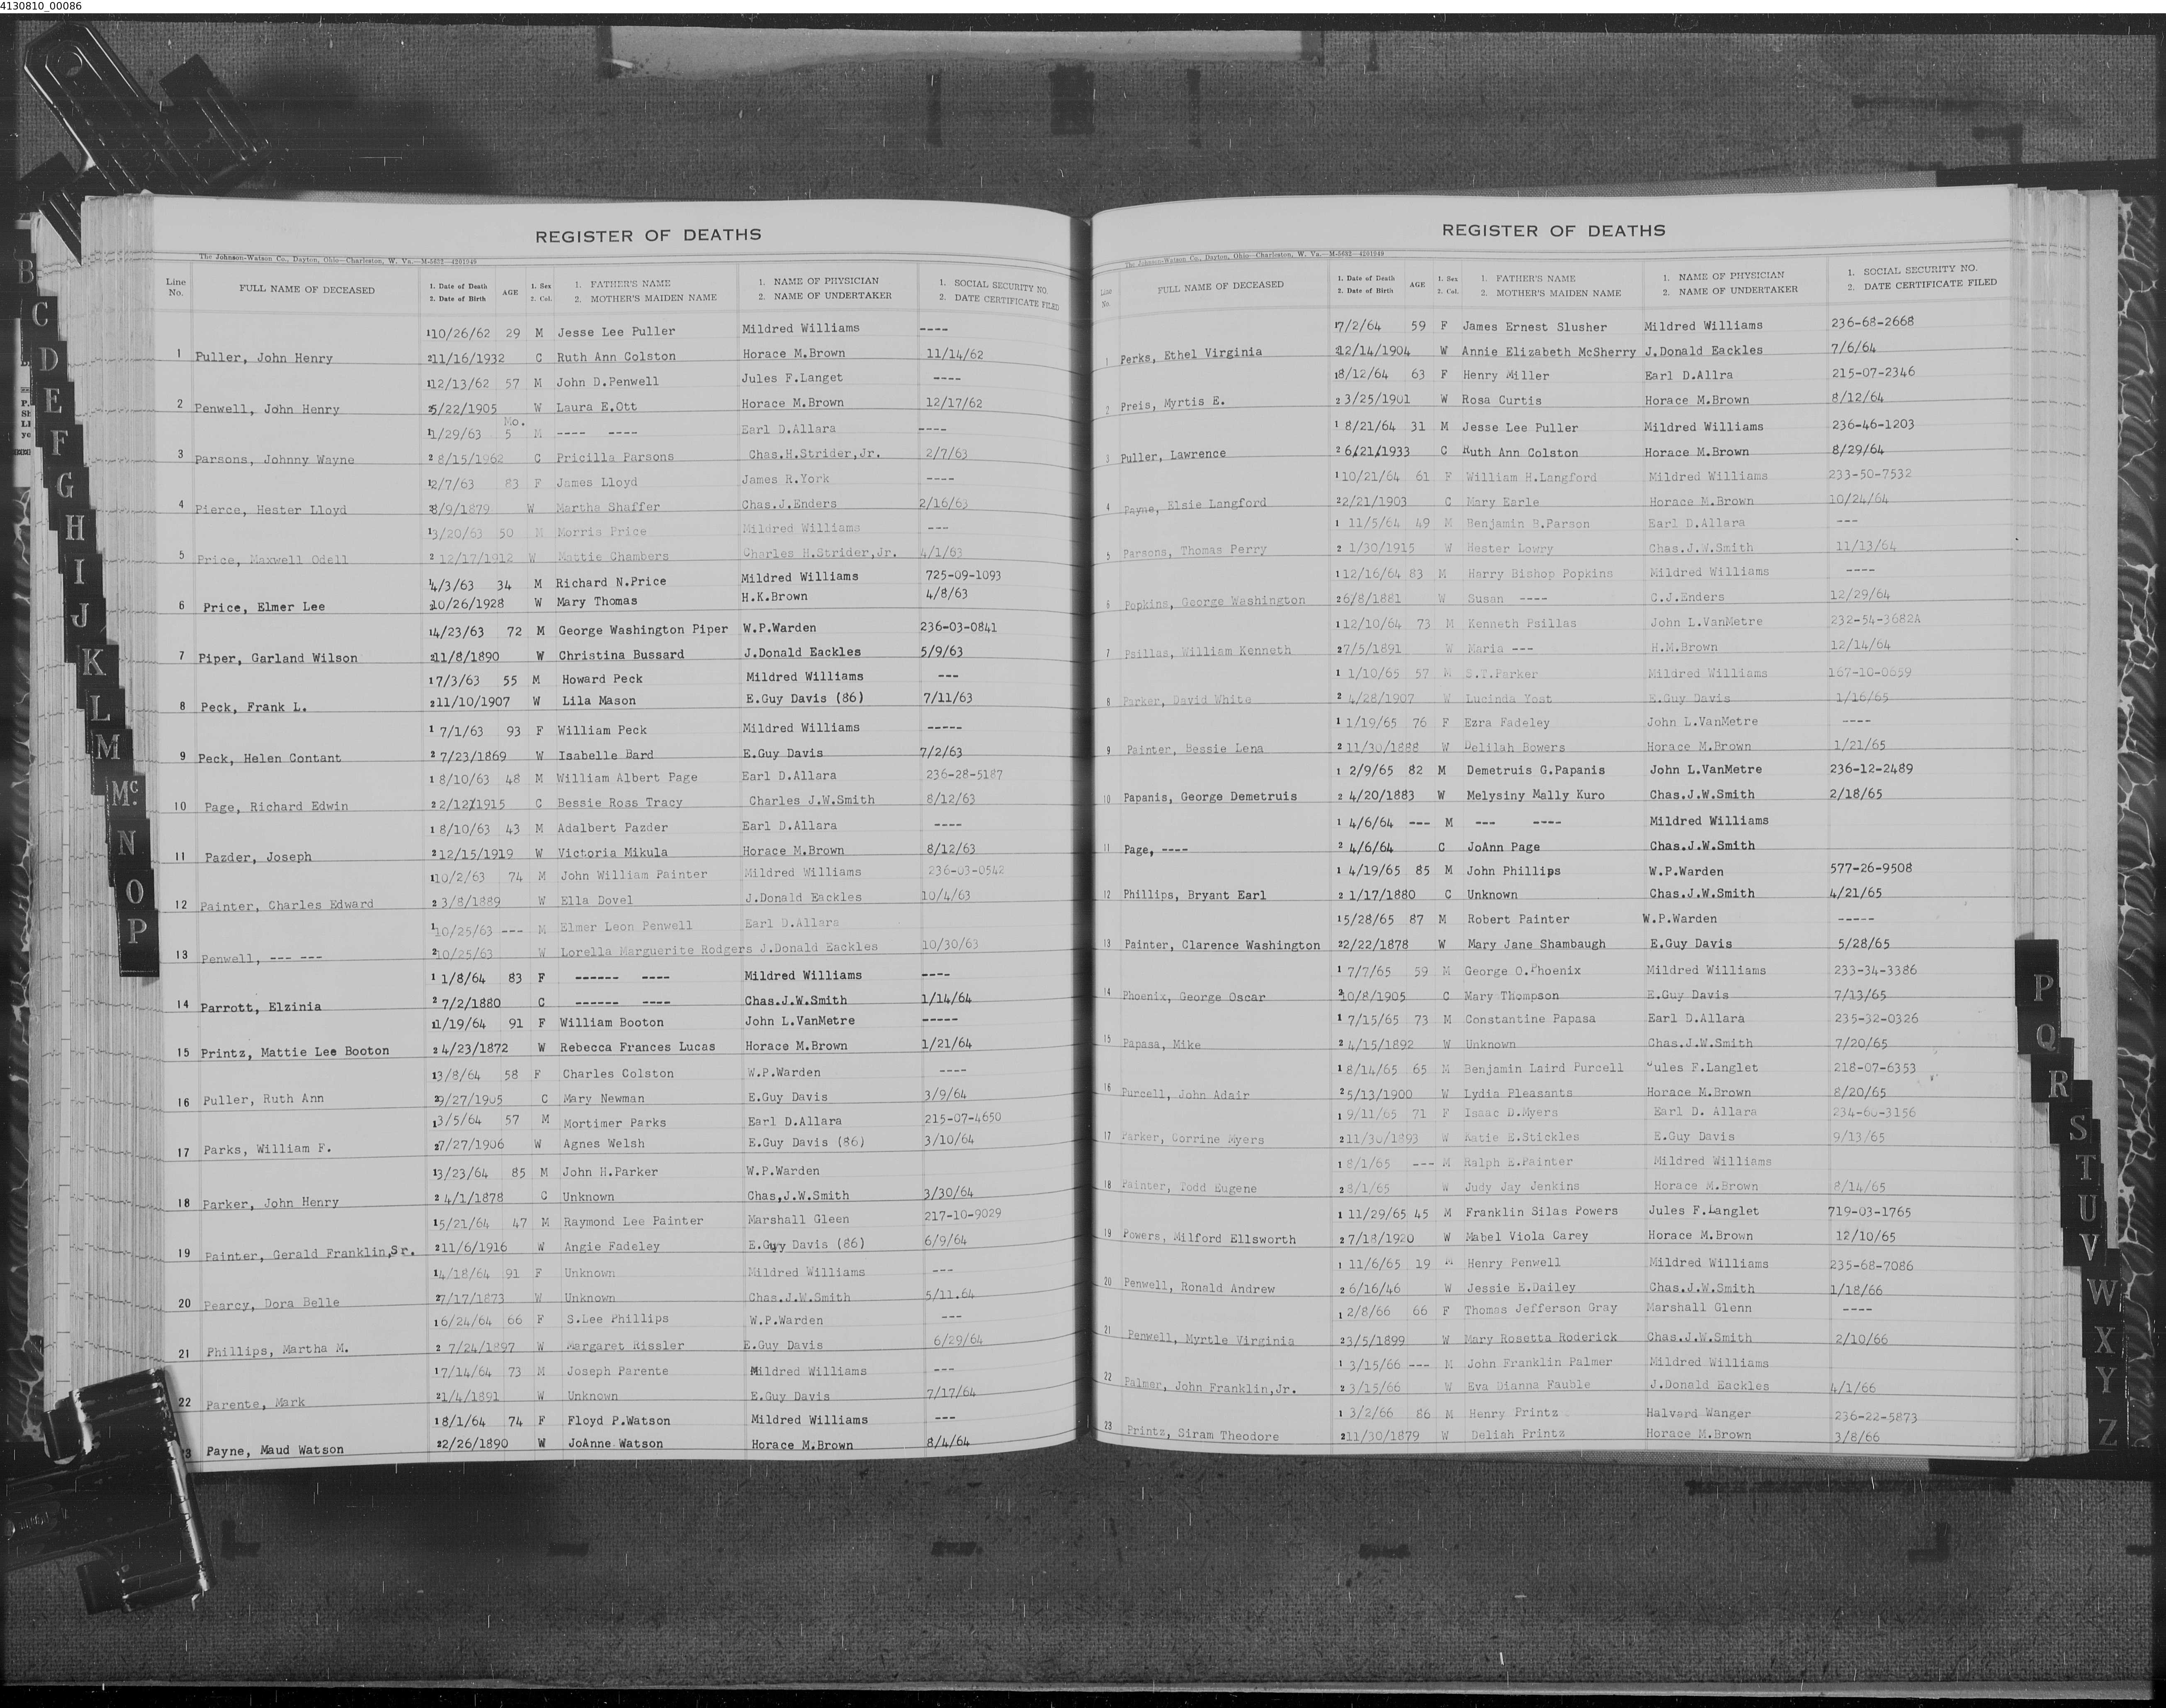 4130810_00086
REGISTER OF DEATHS
The Johnson-Watson Co., Dayton, Ohio—Charleston, W. Va.—M-5682—4201949
Line No. FULL NAME OF DECEASED 1. Date of Death 2. Date of Birth AGE 1. Sex 2. Col. 1. FATHER'S NAME 2. MOTHER'S MAIDEN NAME 1. NAME OF PHYSICIAN 2. NAME OF UNDERTAKER 1. SOCIAL SECURITY NO. 2. DATE CERTIFICATE FILED
1 10/26/62 29 M Jesse Lee Puller Mildred Williams ----
1 Puller, John Henry 2 11/16/1932 C Ruth Ann Colston Horace M.Brown 11/14/62
1 12/13/62 57 M John D.Penwell Jules F.Langet ----
2 Penwell, John Henry 2 5/22/1905 W Laura E.Ott Horace M.Brown 12/17/62
Mo.
1 1/29/63 5 M ---- ---- Earl D.Allara ----
3 Parsons, Johnny Wayne 2 8/15/1962 C Pricilla Parsons Chas.H.Strider,Jr. 2/7/63
1 2/7/63 83 F James Lloyd James R.York ----
4 Pierce, Hester Lloyd 2 8/9/1879 W Martha Shaffer Chas.J.Enders 2/16/63
1 3/20/63 50 M Morris Price Mildred Williams ---
5 Price, Maxwell Odell 2 12/17/1912 W Mattie Chambers Charles H.Strider,Jr. 4/1/63
1 4/3/63 34 M Richard N.Price Mildred Williams 725-09-1093
6 Price, Elmer Lee 2 10/26/1928 W Mary Thomas H.K.Brown 4/8/63
1 4/23/63 72 M George Washington Piper W.P.Warden 236-03-0841
7 Piper, Garland Wilson 2 11/8/1890 W Christina Bussard J.Donald Eackles 5/9/63
1 7/3/63 55 M Howard Peck Mildred Williams ---
8 Peck, Frank L. 2 11/10/1907 W Lila Mason E.Guy Davis (86) 7/11/63
1 7/1/63 93 F William Peck Mildred Williams -----
9 Peck, Helen Contant 2 7/23/1869 W Isabelle Bard E.Guy Davis 7/2/63
1 8/10/63 48 M William Albert Page Earl D.Allara 236-28-5187
10 Page, Richard Edwin 2 2/12/1915 C Bessie Ross Tracy Charles J.W.Smith 8/12/63
1 8/10/63 43 M Adalbert Pazder Earl D.Allara ----
11 Pazder, Joseph 2 12/15/1919 W Victoria Mikula Horace M.Brown 8/12/63
1 10/2/63 74 M John William Painter Mildred Williams 236-03-0542
12 Painter, Charles Edward 2 3/8/1889 W Ella Dovel J.Donald Eackles 10/4/63
1 10/25/63 --- M Elmer Leon Penwell Earl D.Allara
13 Penwell, --- --- 2 10/25/63 W Lorella Marguerite Rodgers J.Donald Eackles 10/30/63
1 1/8/64 83 F ------ ---- Mildred Williams ----
14 Parrott, Elzinia 2 7/2/1880 C ------ ---- Chas.J.W.Smith 1/14/64
1 1/19/64 91 F William Booton John L.VanMetre -----
15 Printz, Mattie Lee Booton 2 4/23/1872 W Rebecca Frances Lucas Horace M.Brown 1/21/64
1 3/8/64 58 F Charles Colston W.P.Warden ----
16 Puller, Ruth Ann 2 9/27/1905 C Mary Newman E.Guy Davis 3/9/64
1 3/5/64 57 M Mortimer Parks Earl D.Allara 215-07-4650
17 Parks, William F. 2 7/27/1906 W Agnes Welsh E.Guy Davis (86) 3/10/64
1 3/23/64 85 M John H.Parker W.P.Warden
18 Parker, John Henry 2 4/1/1878 C Unknown Chas,J.W.Smith 3/30/64
1 5/21/64 47 M Raymond Lee Painter Marshall Gleen 217-10-9029
19 Painter, Gerald Franklin,Sr. 2 11/6/1916 W Angie Fadeley E.Guy Davis (86) 6/9/64
1 4/18/64 91 F Unknown Mildred Williams ---
20 Pearcy, Dora Belle 2 7/17/1873 W Unknown Chas.J.W.Smith 5/11.64
1 6/24/64 66 F S.Lee Phillips W.P.Warden ---
21 Phillips, Martha M. 2 7/24/1897 W Margaret Rissler E.Guy Davis 6/29/64
1 7/14/64 73 M Joseph Parente Mildred Williams ---
22 Parente, Mark 2 1/4/1891 W Unknown E.Guy Davis 7/17/64
1 8/1/64 74 F Floyd P.Watson Mildred Williams ---
23 Payne, Maud Watson 2 2/26/1890 W JoAnne Watson Horace M.Brown 8/4/64
REGISTER OF DEATHS
The Johnson-Watson Co., Dayton, Ohio—Charleston, W. Va.—M-5682—4201949
Line No. FULL NAME OF DECEASED 1. Date of Death 2. Date of Birth AGE 1. Sex 2. Col. 1. FATHER'S NAME 2. MOTHER'S MAIDEN NAME 1. NAME OF PHYSICIAN 2. NAME OF UNDERTAKER 1. SOCIAL SECURITY NO. 2. DATE CERTIFICATE FILED
1 7/2/64 59 F James Ernest Slusher Mildred Williams 236-68-2668
1 Perks, Ethel Virginia 2 12/14/1904 W Annie Elizabeth McSherry J.Donald Eackles 7/6/64
1 8/12/64 63 F Henry Miller Earl D.Allra 215-07-2346
2 Preis, Myrtis E. 2 3/25/1901 W Rosa Curtis Horace M.Brown 8/12/64
1 8/21/64 31 M Jesse Lee Puller Mildred Williams 236-46-1203
3 Puller, Lawrence 2 6/21/1933 C Ruth Ann Colston Horace M.Brown 8/29/64
1 10/21/64 61 F William H.Langford Mildred Williams 233-50-7532
4 Payne, Elsie Langford 2 2/21/1903 C Mary Earle Horace M.Brown 10/24/64
1 11/5/64 49 M Benjamin B.Parson Earl D.Allara ---
5 Parsons, Thomas Perry 2 1/30/1915 W Hester Lowry Chas.J.W.Smith 11/13/64
1 12/16/64 83 M Harry Bishop Popkins Mildred Williams ----
6 Popkins, George Washington 2 6/8/1881 W Susan ---- C.J.Enders 12/29/64
1 12/10/64 73 M Kenneth Psillas John L.VanMetre 232-54-3682A
7 Psillas, William Kenneth 2 7/5/1891 W Maria --- H.M.Brown 12/14/64
1 1/10/65 57 M S.T.Parker Mildred Williams 167-10-0659
8 Parker, David White 2 4/28/1907 W Lucinda Yost E.Guy Davis 1/16/65
1 1/19/65 76 F Ezra Fadeley John L.VanMetre ----
9 Painter, Bessie Lena 2 11/30/1888 W Delilah Bowers Horace M.Brown 1/21/65
1 2/9/65 82 M Demetruis G.Papanis John L.VanMetre 236-12-2489
10 Papanis, George Demetruis 2 4/20/1883 W Melysiny Mally Kuro Chas.J.W.Smith 2/18/65
1 4/6/64 --- M --- ---- Mildred Williams
11 Page, ---- 2 4/6/64 C JoAnn Page Chas.J.W.Smith
1 4/19/65 85 M John Phillips W.P.Warden 577-26-9508
12 Phillips, Bryant Earl 2 1/17/1880 C Unknown Chas.J.W.Smith 4/21/65
1 5/28/65 87 M Robert Painter W.P.Warden -----
13 Painter, Clarence Washington 2 2/22/1878 W Mary Jane Shambaugh E.Guy Davis 5/28/65
1 7/7/65 59 M George O.Phoenix Mildred Williams 233-34-3386
14 Phoenix, George Oscar 2 10/8/1905 C Mary Thompson E.Guy Davis 7/13/65
1 7/15/65 73 M Constantine Papasa Earl D.Allara 235-32-0326
15 Papasa, Mike 2 4/15/1892 W Unknown Chas.J.W.Smith 7/20/65
1 8/14/65 65 M Benjamin Laird Purcell Jules F.Langlet 218-07-6353
16 Purcell, John Adair 2 5/13/1900 W Lydia Pleasants Horace M.Brown 8/20/65
1 9/11/65 71 F Isaac D.Myers Earl D. Allara 234-60-3156
17 Parker, Corrine Myers 2 11/30/1893 W Katie E.Stickles E.Guy Davis 9/13/65
1 8/1/65 --- M Ralph E.Painter Mildred Williams
18 Painter, Todd Eugene 2 8/1/65 W Judy Jay Jenkins Horace M.Brown 8/14/65
1 11/29/65 45 M Franklin Silas Powers Jules F.Langlet 719-03-1765
19 Powers, Milford Ellsworth 2 7/18/1920 W Mabel Viola Carey Horace M.Brown 12/10/65
1 11/6/65 19 M Henry Penwell Mildred Williams 235-68-7086
20 Penwell, Ronald Andrew 2 6/16/46 W Jessie E.Dailey Chas.J.W.Smith 1/18/66
1 2/8/66 66 F Thomas Jefferson Gray Marshall Glenn ----
21 Penwell, Myrtle Virginia 2 3/5/1899 W Mary Rosetta Roderick Chas.J.W.Smith 2/10/66
1 3/15/66 --- M John Franklin Palmer Mildred Williams
22 Palmer, John Franklin,Jr. 2 3/15/66 W Eva Dianna Fauble J.Donald Eackles 4/1/66
1 3/2/66 86 M Henry Printz Halvard Wanger 236-22-5873
23 Printz, Siram Theodore 2 11/30/1879 W Deliah Printz Horace M.Brown 3/8/66
B
C
D
E
F
G
H
I
J
K
L
M
Mc
N
O
P
P
Q
R
S
T
U
V
W
X
Y
Z